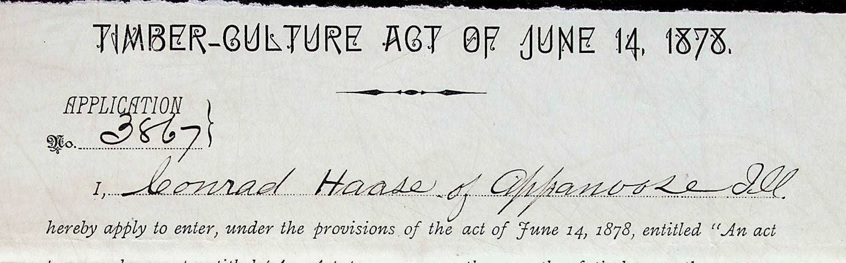 TIMBER-CULTURE ACT OF JUNE 14, 1878.
APPLICATION
No. 3867
I, Conrad Haase of Appanoose Ill.
hereby apply to enter, under the provisions of the act of June 14, 1878, entitled "An act